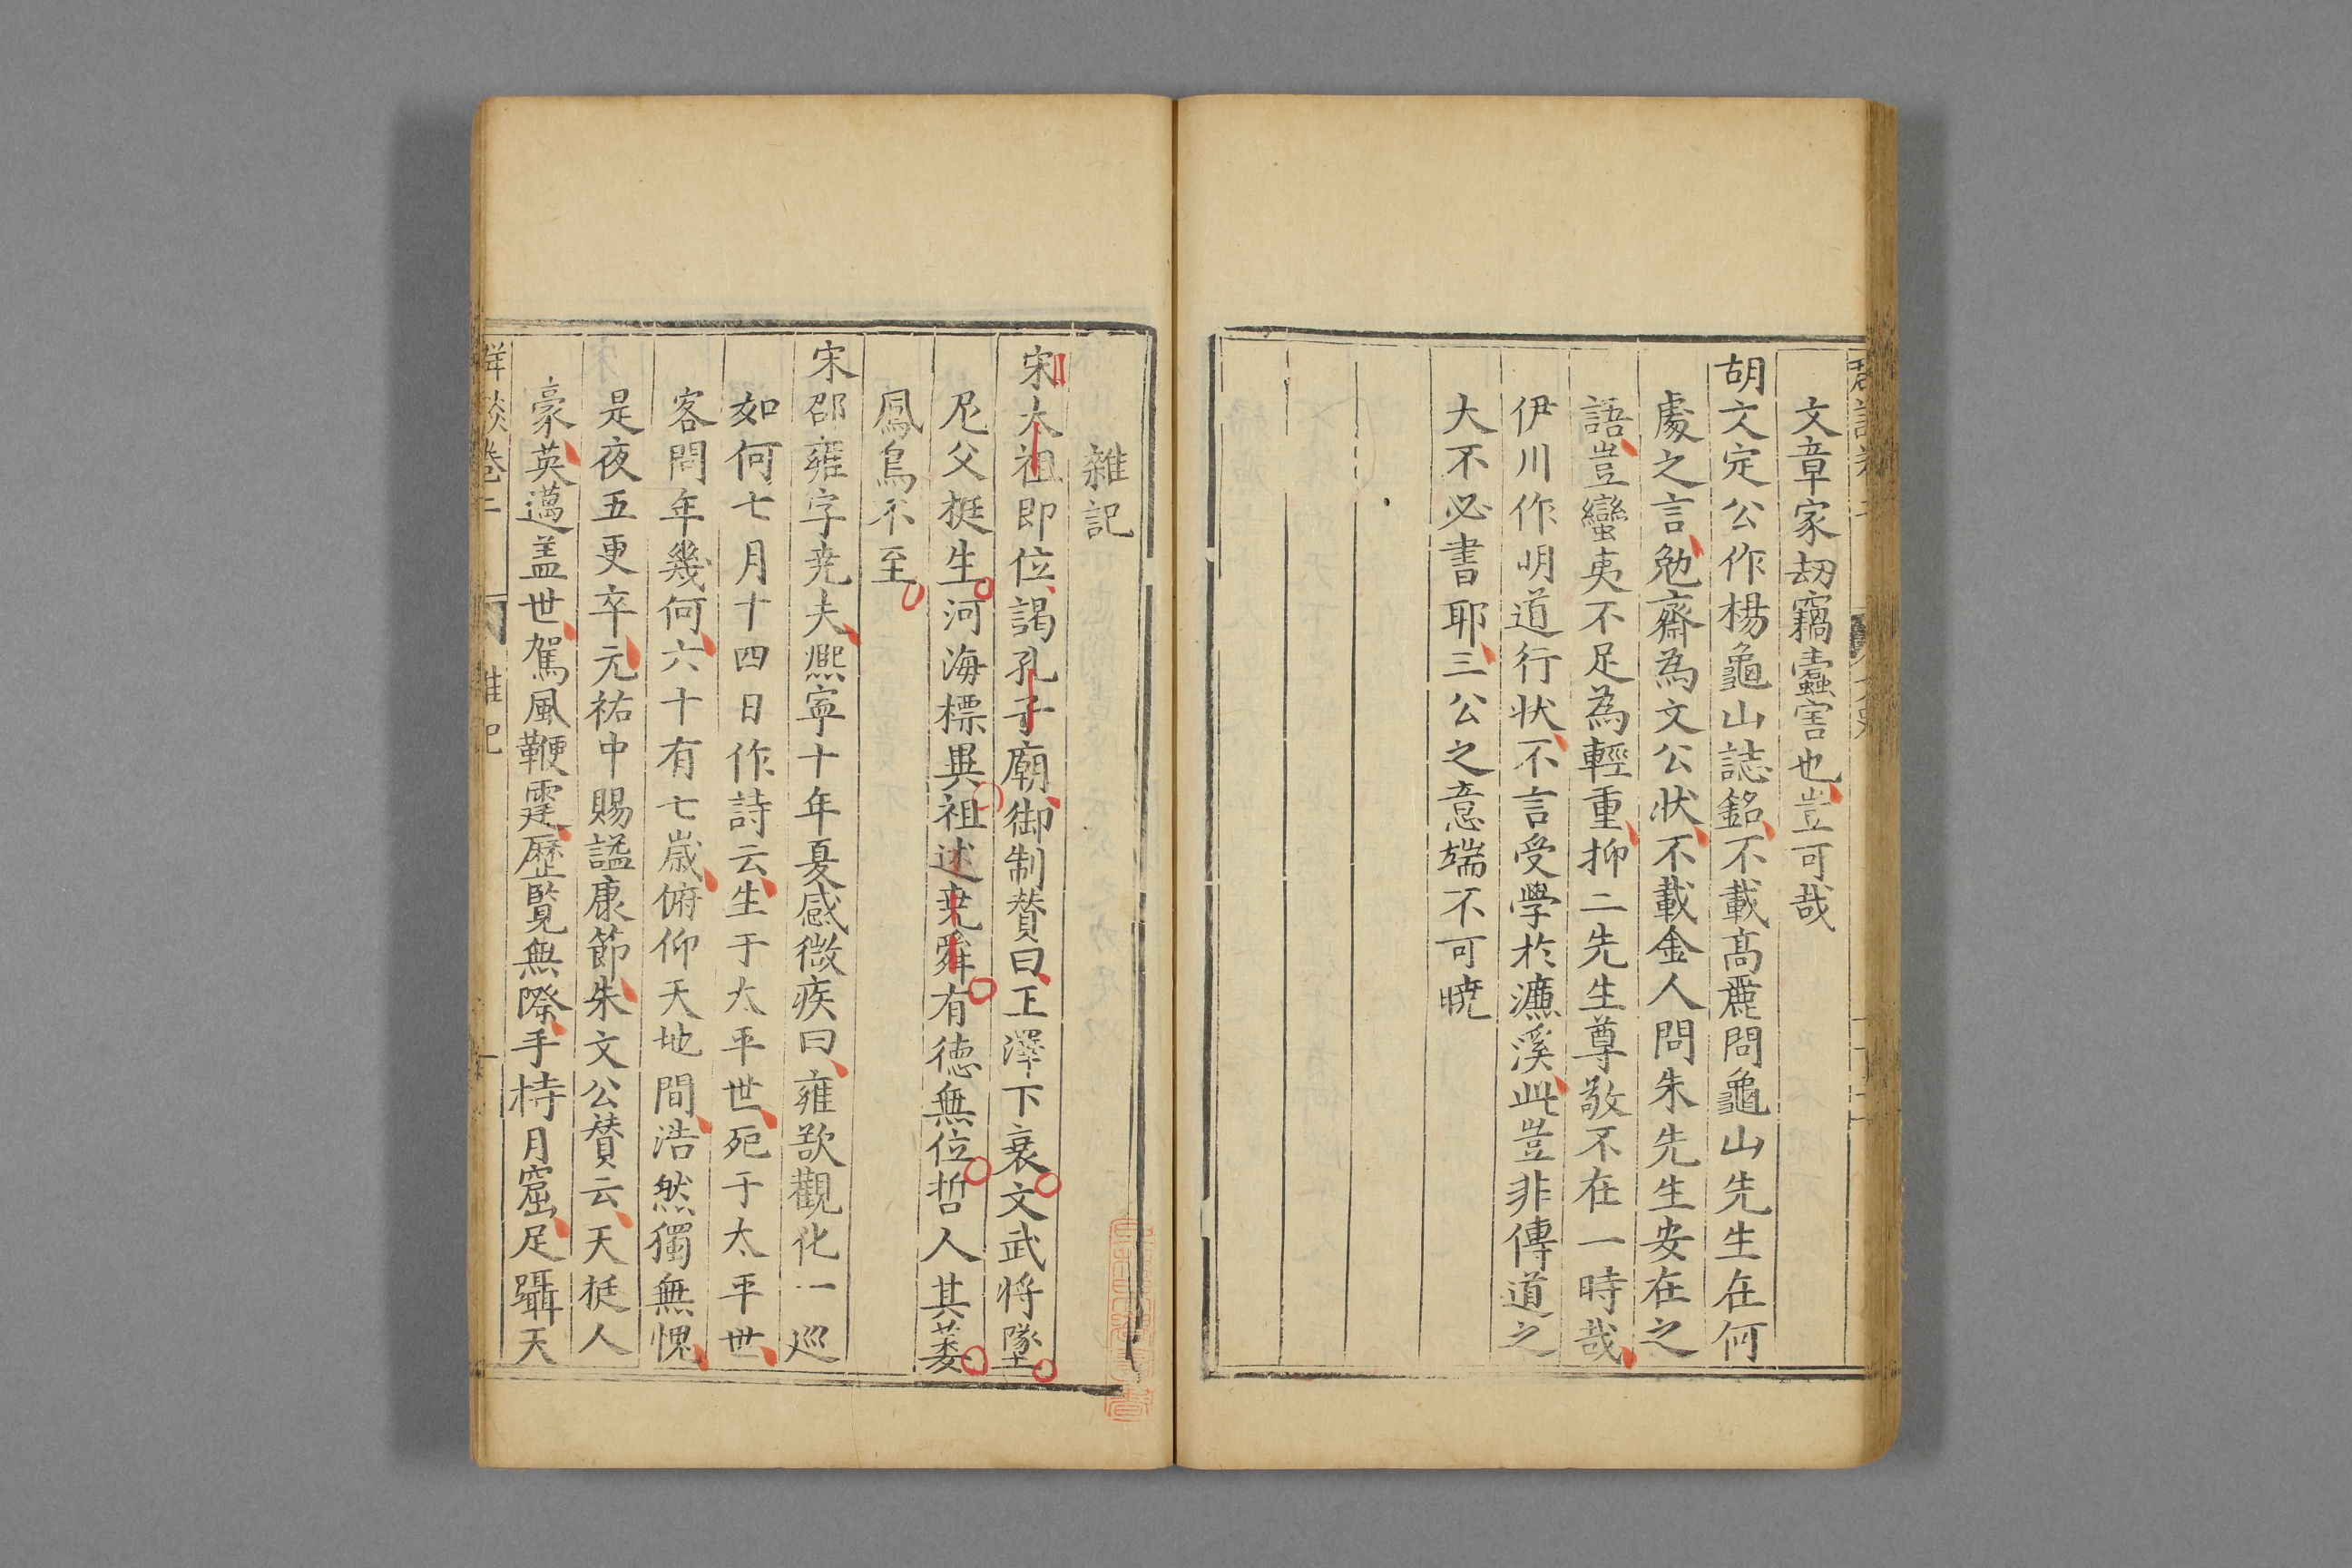 文章家刼竊蠹害也豈可哉
胡文定公作楊龜山誌銘不載髙麗問龜山先生在何
處之言勉齋為文公狀不載金人問朱先生安在之
語豈蠻夷不足為輕重抑二先生尊敬不在一時哉
伊川作明道行状不言受學於濂溪此豈非傳道之
大不必書耶三公之意端不可暁
雜記
宋太祖即位謁孔子廟御制賛曰王澤下衰文武將墜
尼父挺生河海標異祖述尭舜有徳無位哲人其萎
鳳鳥不至
宋邵雍字尭夫熈寧十年夏感微疾曰雍欲觀化一巡
如何七月十四日作詩云生于太平世死于太平世
客問年幾何六十有七歲俯仰天地間浩然獨無愧
是夜五更卒元祐中賜謚康節朱文公賛云天挺人
豪英邁盖世駕風鞭霆歷覧無際手㭙月窟足躡天
談卷二
雜記